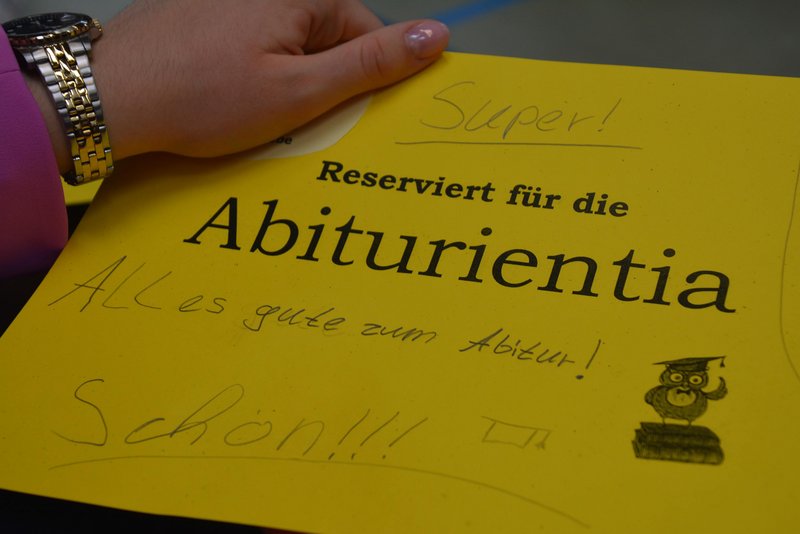 Super!
Reserviert für die
Abiturientia
Alles gute zum Abitur!
Schön!!!